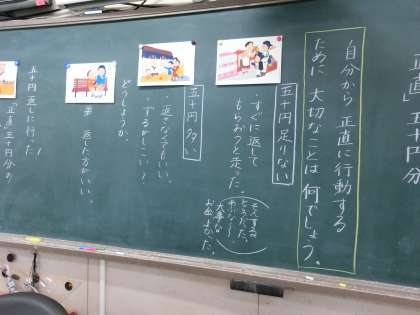 正直」五十円分
自分から正直に行動する
ために大切なことは何でしょう。
五十円足りない
・すぐに返して
もらおうと走った。
そんするところだった。
大事な
お金だった。
五十円多い
・返さなくてもいい。
・するがしこい!
どうしようか。
弟 返した方がいい。
五十円返しに行った!
「正直」五十円分の